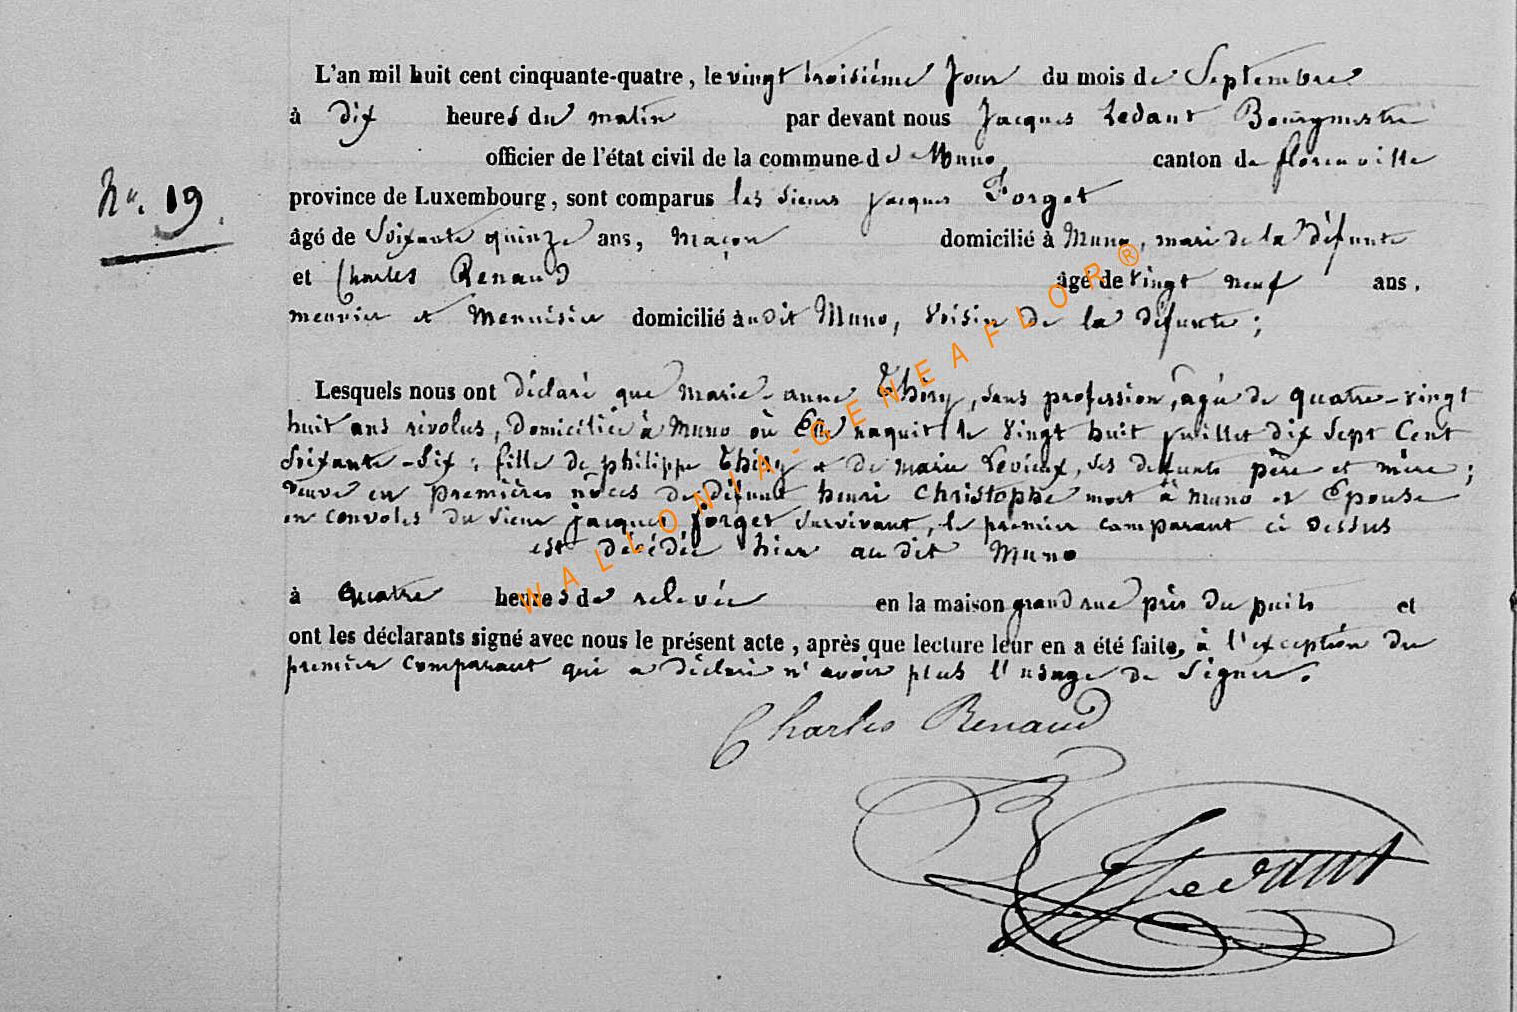 L'an mil huit cent cinquante-quatre, le vingt troisième jour du mois de Septembre
à dix heures du matin par devant nous Jacques Ledant Bourgmestre
officier de l'état civil de la commune de Muno, canton de florenville
N°. 19.
province de Luxembourg, sont comparus les sieurs jacques Forget
âgé de soixante quinze ans, maçon domicilié à Muno, mari de la défunte
et Charles Renaud âgé de vingt neuf ans,
meunier et Menuisier domicilié audit Muno, voisin de la défunte;
Lesquels nous ont déclaré que marie-anne Thiry, sans profession, agée de quatre-vingt
huit ans révolus, domiciliée à Muno où Elle naquit le vingt huit juillet dix sept Cent
soixante-six; fille de philippe Thiry et de marie Levieux, ses defunts père et mère;
veuve en premières nôces de défunt henri Christophe mort à Muno et Epouse
en convoles du sieur jacques forget survivant, le premier comparant ci dessus
est décédée hier au dit Muno
à quatre heures de relevée en la maison grand rue près du puits et
ont les déclarants signé avec nous le présent acte, après que lecture leur en a été faite, à l'exception du
premier comparant qui a déclaré n'avoir plus l'usage de signer.
Charles Renaud
JLedant
WALLONIA-GENEAFLOR®